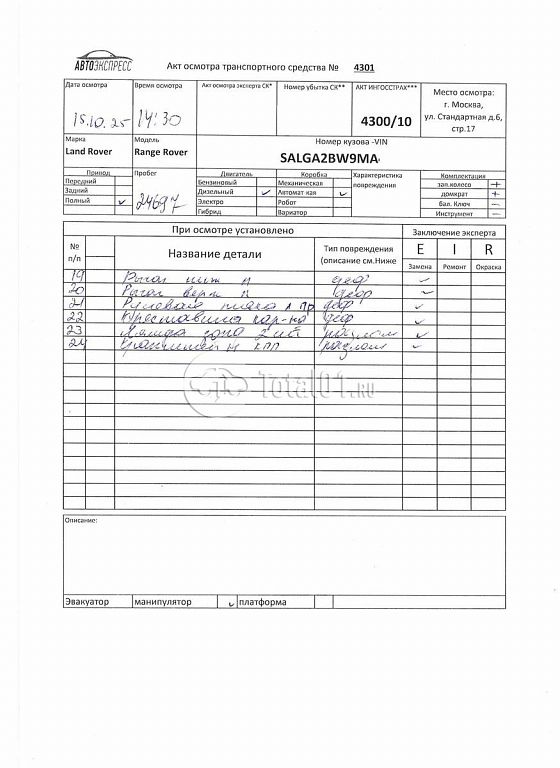 АВТОЭКСПРЕСС
Акт осмотра транспортного средства № 4301
Дата осмотра Время осмотра Акт осмотра эксперта СК* Номер убытка СК** АКТ ИНГОССТРАХ*** Место осмотра:
г. Москва,
ул. Стандартная д.6,
стр.17
15.10.25 14:30 4300/10
Марка Модель Номер кузова -VIN
Land Rover Range Rover SALGA2BW9MA
Привод Пробег Двигатель Коробка Характеристика повреждения Комплектация
Передний Бензиновый Механическая зап.колесо +
Задний Дизельный ✓ Автомат кая ✓ домкрат +
Полный ✓ 24697 Электро Робот бал. Ключ —
Гибрид Вариатор Инструмент —
При осмотре установлено Заключение эксперта
№ п/п Название детали Тип повреждения (описание см.Ниже E I R
Замена Ремонт Окраска
19 Рычаг ниж деф ✓
20 Рычаг верх деф ✓
21 Рулевая л пр деф ✓
22 Крестовина кар-на деф ✓
23 разлом ✓
24 КПП разлом ✓
Total01.ru
Описание:
Эвакуатор манипулятор ✓ платформа